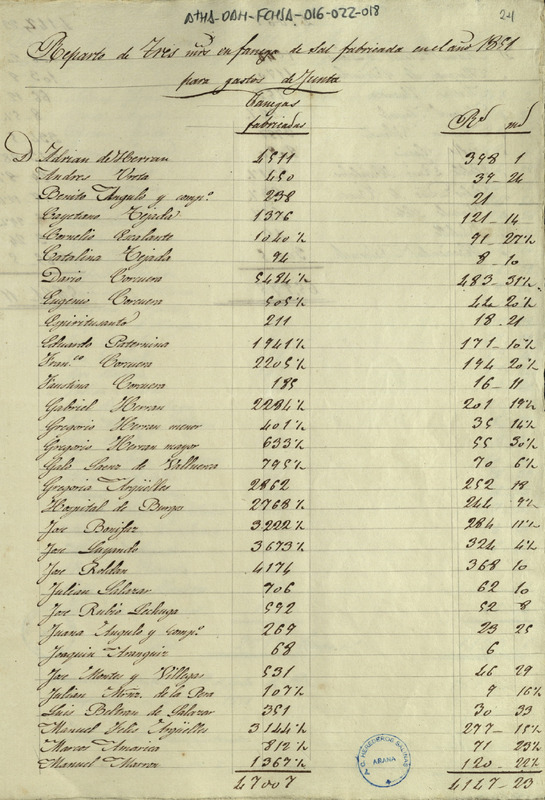 ATHA-DAH-FCHSA-016-022-018
24
Reparto de Tres mrs en fanega de Sal fabricada en el año 1851
para gastos de Junta
Fanegas
fabricadas Rs ms
D Adrian de Herran 4511 398 1
Andres 450 39 24
Benito Angulo y compª 238 21
Cayetano Tejada 1376 121 14
Cornelio Escalante 1040½ 91 27½
Catalina Tejada 94 8 10
Dario Corcuera 5484½ 483 31½
Eugenio Corcuera 505½ 44 20½
Espiritusanto 211 18 21
Eduardo Paternina 1941½ 171 10½
Franco Corcuera 2205½ 194 20½
Faustina Corcuera 185 16 11
Gabriel Herran 2284½ 201 19½
Gregorio Herran menor 401½ 35 14½
Gregorio Herran mayor 633½ 55 30½
Galo Saenz de Valluerca 795½ 70 6½
Gregorio Argüelles 2862 252 18
Hospital de Burgos 2768½ 244 9½
Jose Bonifaz 3222½ 284 11½
Jose 3673½ 324 4½
Jose Roldan 4174 368 10
Julian Salazar 706 62 10
Jose Rubio Lechuga 592 52 8
Juana Angulo y compª 269 23 25
Joaquin Aranguiz 68 6
Jose Montes y Villegas 531 46 29
Julian Mrnz. de la Pera 107½ 9 16½
Luis Beltran de Salazar 351 30 33
Manuel Felix Argüelles 3144½ 277 15½
Marcos Amarica 812½ 71 23½
Manuel Marron 1367½ 120 22½
47007 4147 23